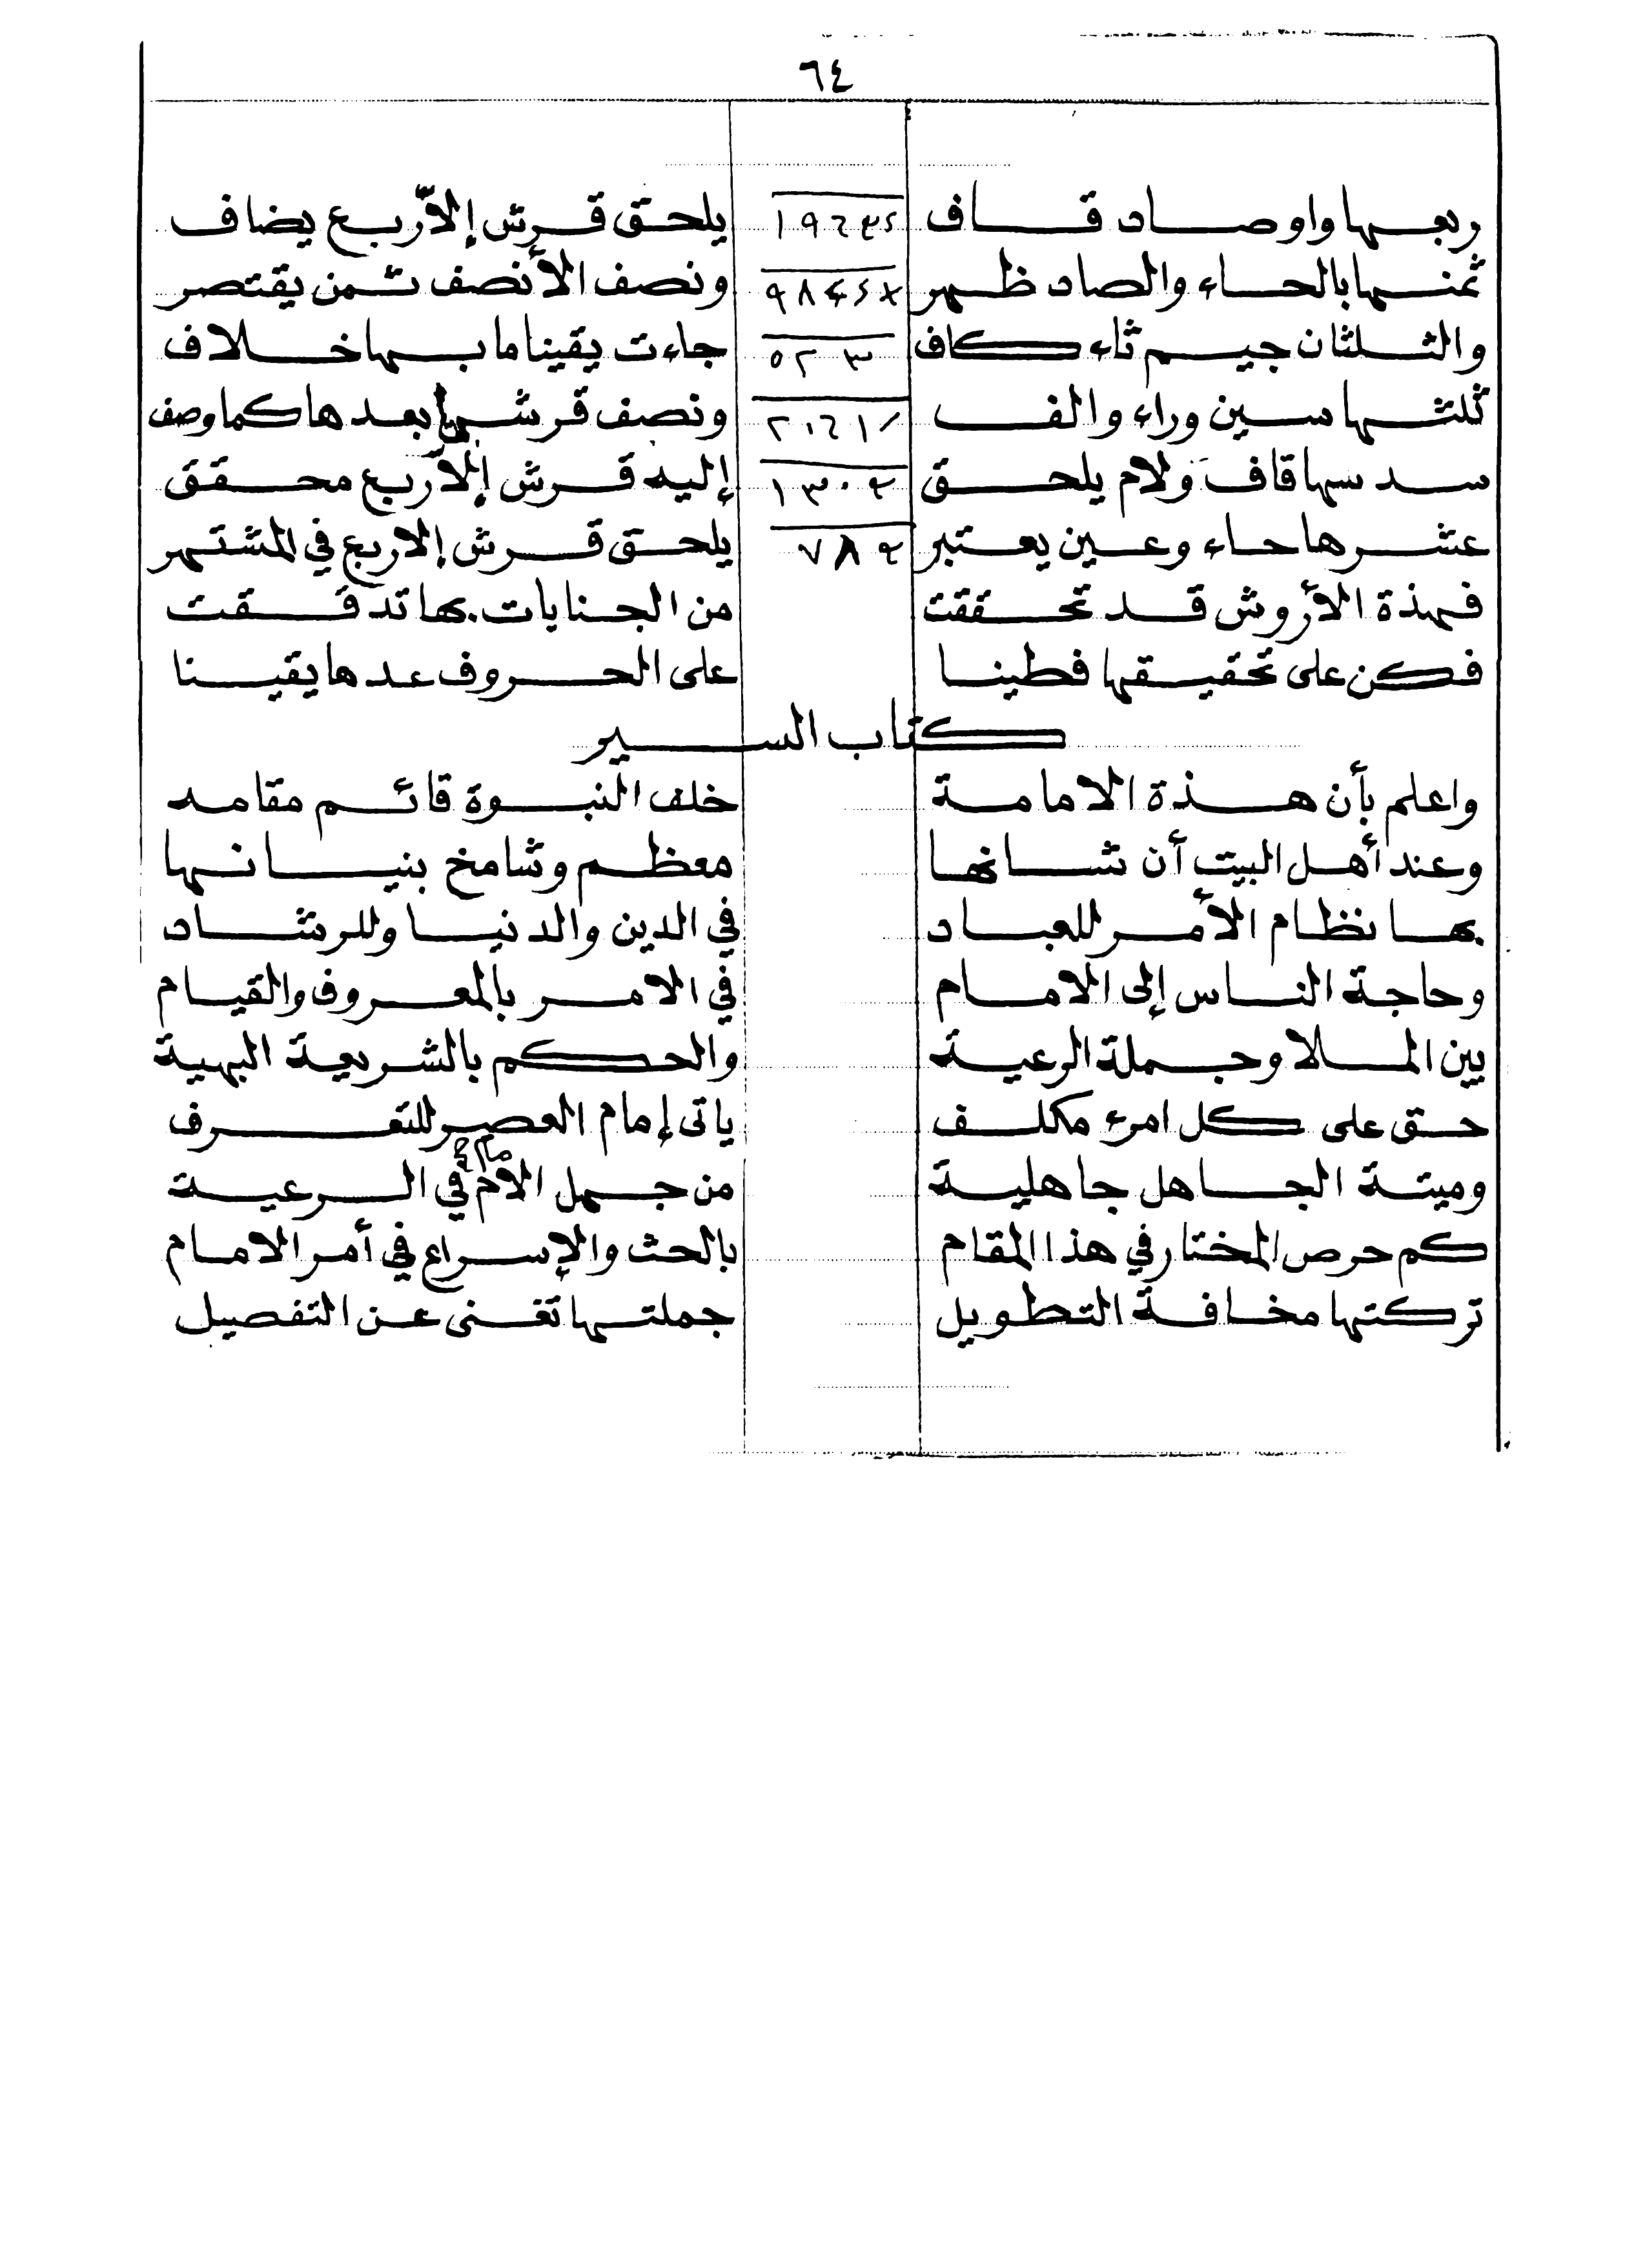 ٦٤
ربعها واو وصاد قاف يلحق قرش إلاّ ربع يضاف
ثمنها بالحاء والصاد ظهر ونصف الأنصف ثمن يقتصر
والثلثان جيم ثاء كاف جاءت يقينا ما بها خلاف
ثلثها سين وراء والف ونصف قرشها بعدها كما وصف
سدسها قاف ولام يلحق إليه قرش إلاّ ربع محقق
عشرها حاء وعين يعتبر يلحق قرش إلا ربع في المشتهر
فهذة الأروش قد تحققت من الجنايات بها تدققت
فكن على تحقيقها فطينا على الحروف عدها يقينا
كتاب السير
واعلم بأن هذة الامامة خلف النبوة قائم مقامه
وعند أهل البيت أن شانها معظم وشامخ بنيانها
بها نظام الأمر للعباد في الدين والدنيا وللرشاد
وحاجة الناس إلى الامام في الامر بالمعروف والقيام
بين الملا وجملة الرعية والحكم بالشريعة البهية
حق على كل امرء مكلف ياتى إمام العصر للتعرف
وميتة الجاهل جاهلية من جهل الامام في الرعية
كم حرص المختار في هذا المقام بالحث والإسراع في أمر الامام
تركتها مخافة التطويل جملتها تغنى عن التفصيل